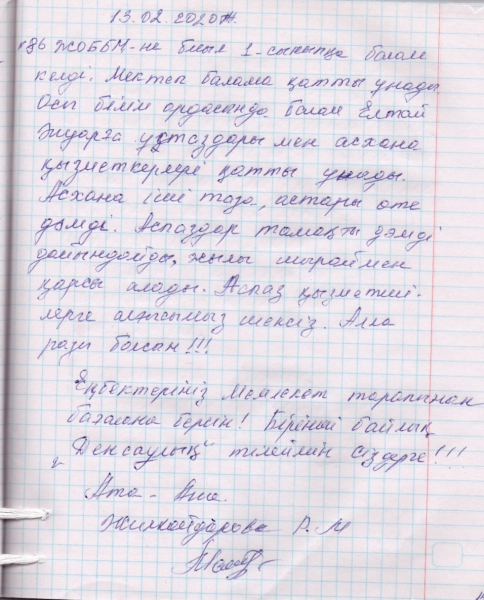 13.02.2020ж.
№36 ЖОББМ-не биыл 1-сыныпқа балам
келді. Мектеп балама қатты ұнады.
Осы білім ордасында балам Елтай
Жуарға ұстаздары мен асхана
қызметкерлері қатты ұнады.
Асхана іші таза, астары өте
дәмді. Аспаздар тамақты дәмді
дайындайды, жылы шыраймен
қарсы алады. Аспаз қызметші-
лерге алғысымыз шексіз. Алла
разы болсын!!!
Еңбектеріңіз Мемлекет тарапынан
бағалана берсін! Бірінші байлық
Денсаулық тілеймін сіздерге!!!
Ата-Ана.
Жилкайдарова Р.М